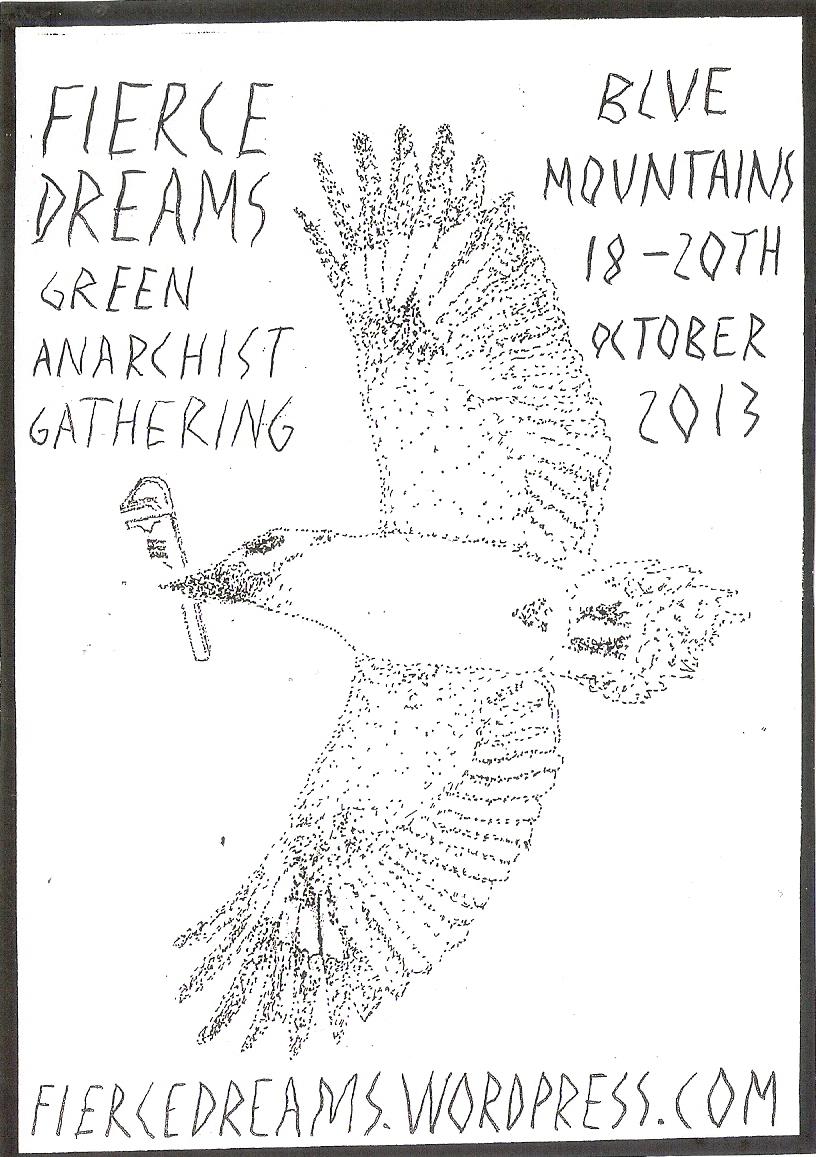 FIERCE
DREAMS
GREEN
ANARCHIST
GATHERING
BLUE
MOUNTAINS
18-20TH
OCTOBER
2013
FIERCEDREAMS.WORDPRESS.COM